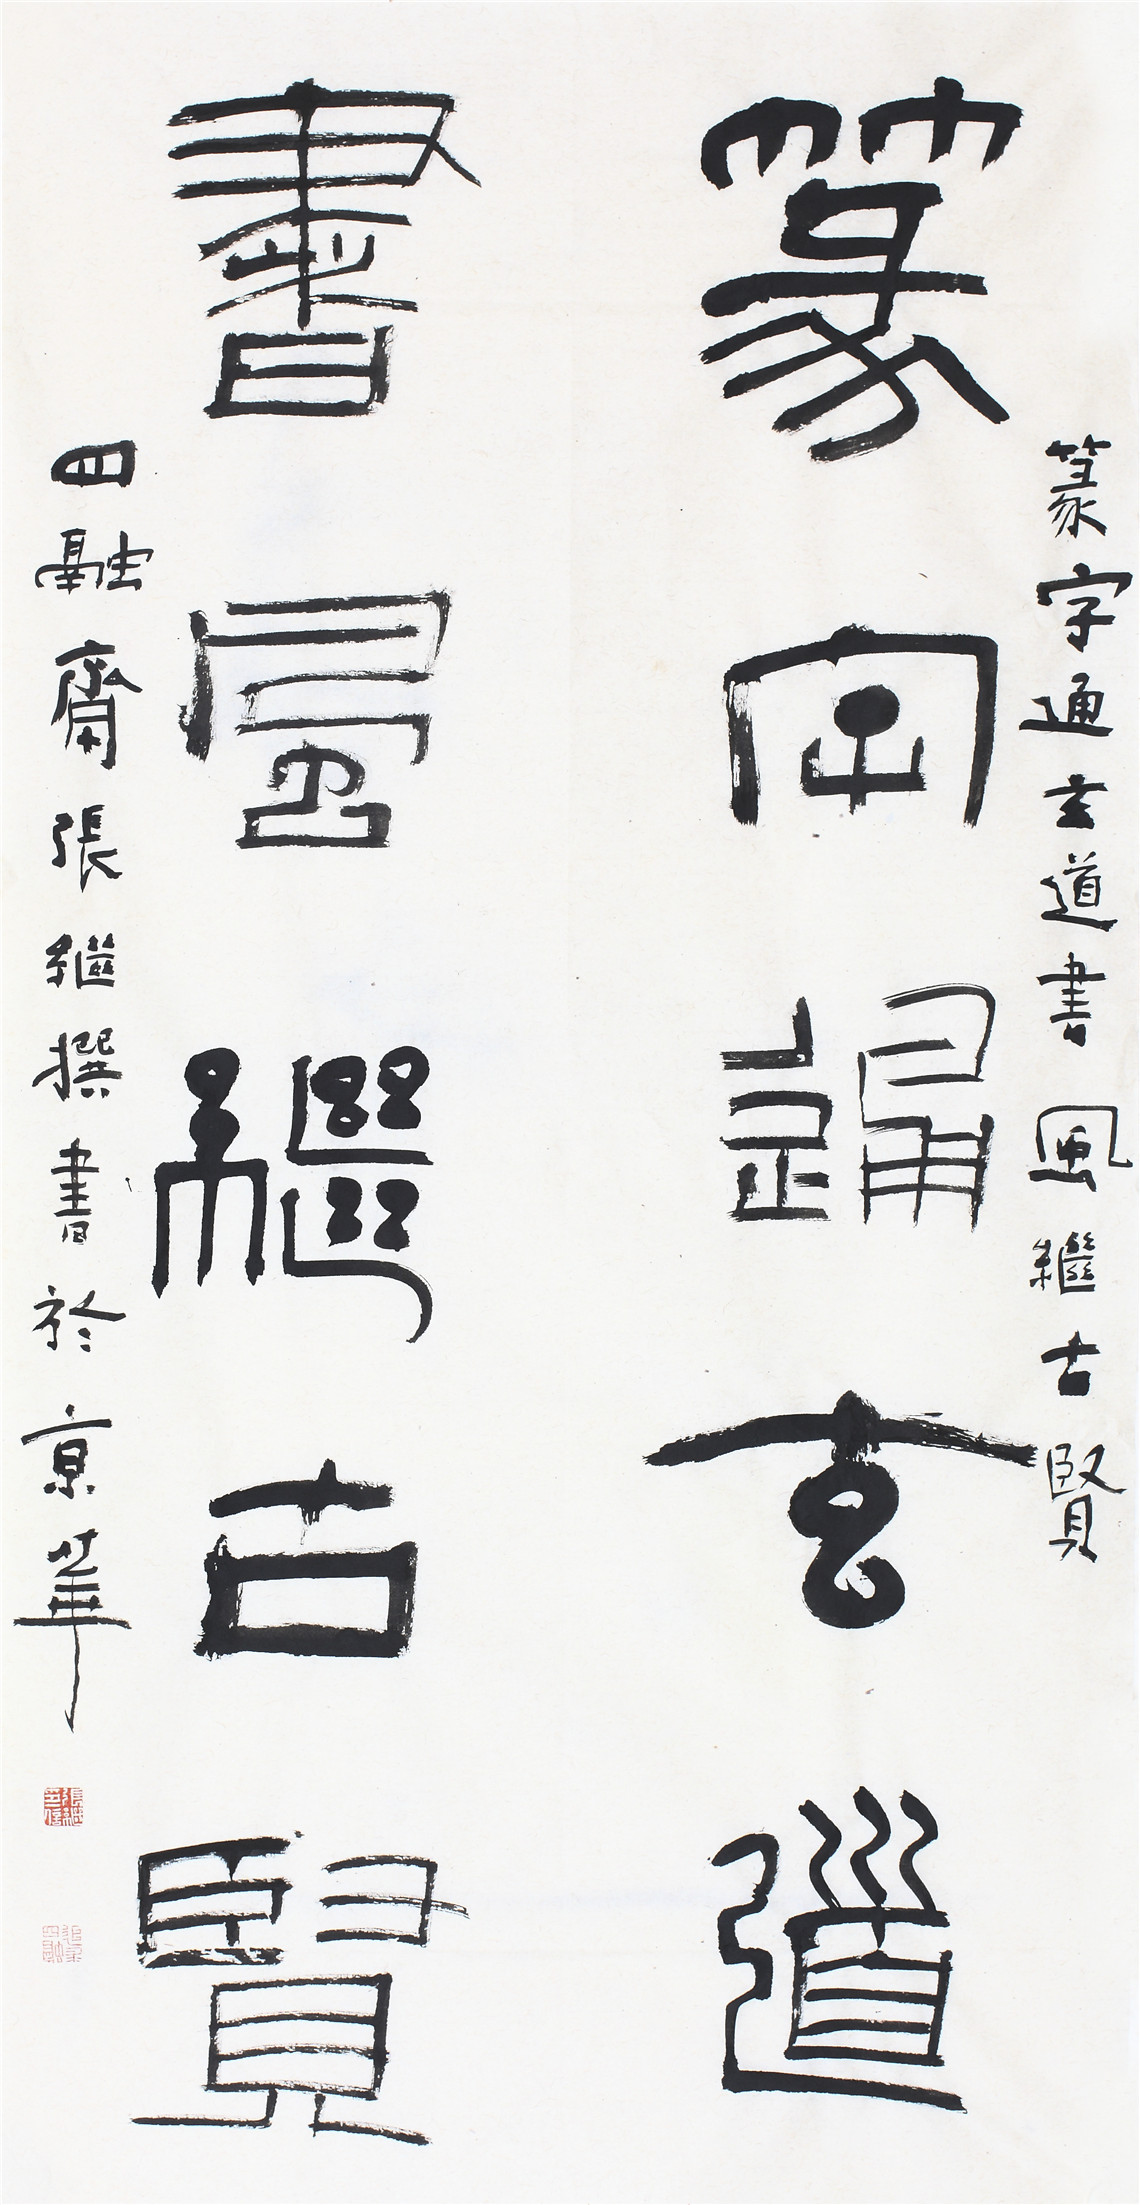 篆字通玄道書風繼古賢
篆字通玄道
書風繼古賢
四融齋張继撰書於京華
張繼
四融